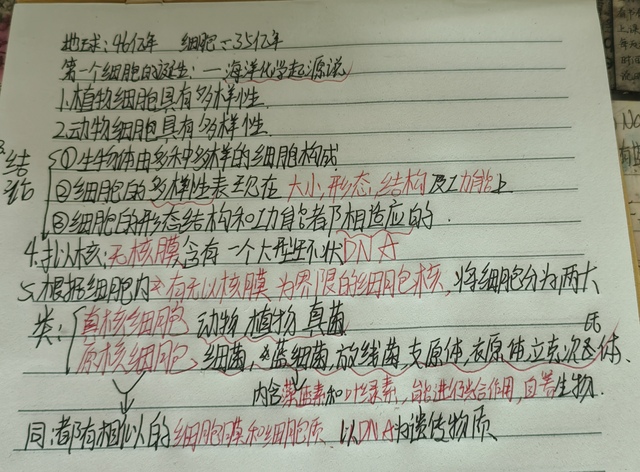 地球:46亿年 细胞:≈35亿年
第一个细胞的诞生:—海洋化学起源说
1.植物细胞具有多样性.
2.动物细胞具有多样性.
3.结论
①生物体由多种多样的细胞构成.
②细胞的多样性表现在大小,形态,结构及功能上
③细胞的形态结构和功能都相适应的.
4.拟核:无核膜含有一个大型环状DNA
5.根据细胞内有无以核膜为界限的细胞核,将细胞分为两大
类:真核细胞 动物 植物 真菌
原核细胞:细菌,蓝细菌,放线菌,支原体,衣原体,立克次氏体.
内含藻蓝素和叶绿素,能进行光合作用,自养生物.
同:都有相似的细胞膜和细胞质 以DNA为遗传物质、